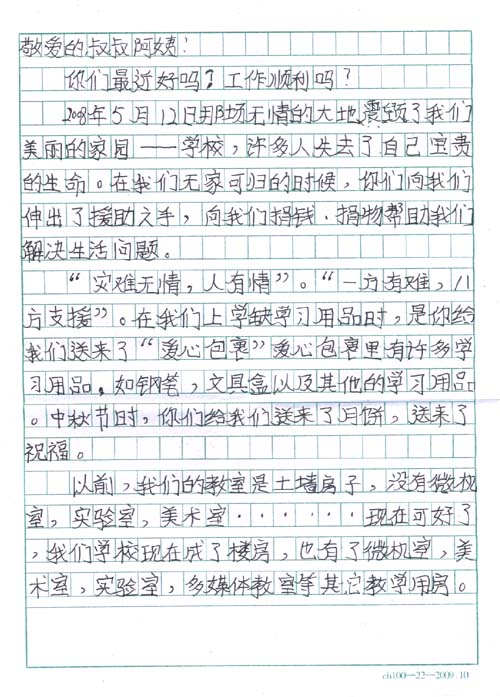 敬爱的叔叔阿姨:
你们最近好吗？工作顺利吗？
2008年5月12日那场无情的大地震毁了我们
美丽的家园——学校，许多人失去了自己宝贵
的生命。在我们无家可归的时候，你们向我们
伸出了援助之手，向我们捐钱．捐物帮助我们
解决生活问题。
“灾难无情，人有情”。“一方有难，八
方支援”。在我们上学缺学习用品时，是你给
我们送来了“爱心包裹”爱心包裹里有许多学
习用品，如钢笔，文具盒以及其他的学习用品
。中秋节时，你们给我们送来了月饼，送来了
祝福。
以前，我们的教室是土墙房子，没有微机
室，实验室，美术室······现在可好了
，我们学校现在成了楼房，也有了微机室，美
术室，实验室，多媒体教室等其它教学用房。
ch100—22—2009.10